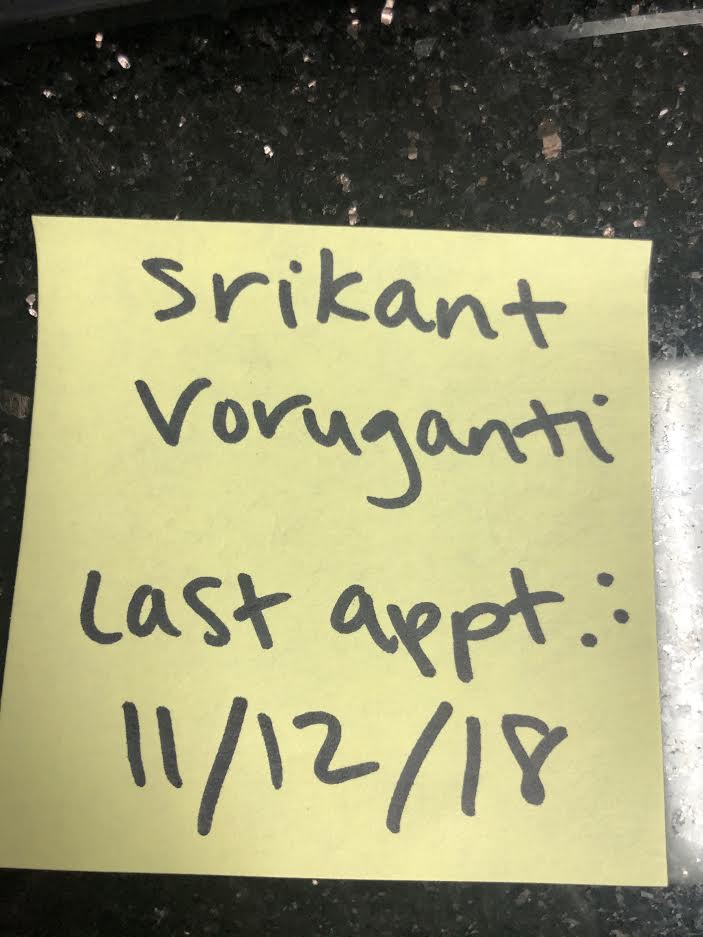 Srikant
Voruganti
Last appt.:
11/12/18